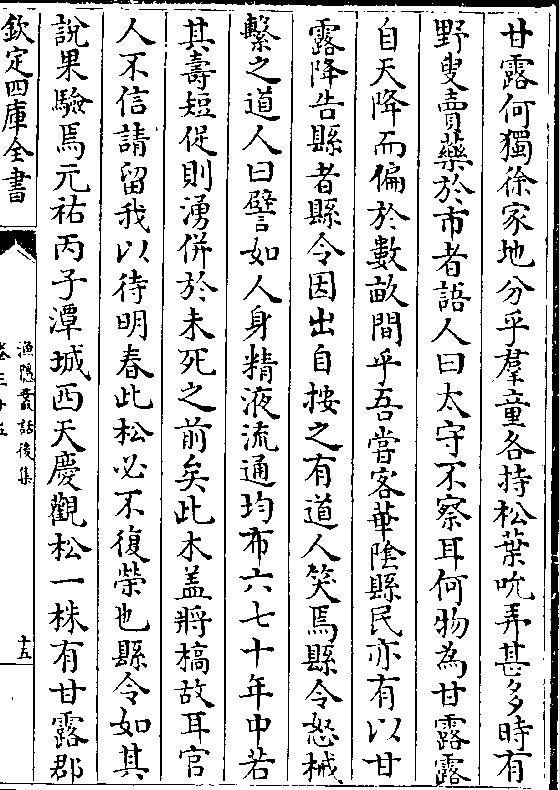 甘露何獨徐家地分乎羣童各持松葉吮弄甚多時有
野叟賣藥於市者語人曰太守不察耳何物為甘露露
自天降而偏於數畝間乎吾嘗客華陰縣民亦有以甘
露降告縣者縣令因出自按之有道人笑焉縣令怒械
繫之道人曰譬如人身精液流通均布六七十年中若
其壽短促則湧併於未死之前矣此木盖將槁故耳官
人不信請留我以待明春此松必不復榮也縣令如其
說果驗焉元祐丙子潭城西天慶觀松一株有甘露郡
欽定四庫全書
漁隱叢話後集
卷三十五
十五